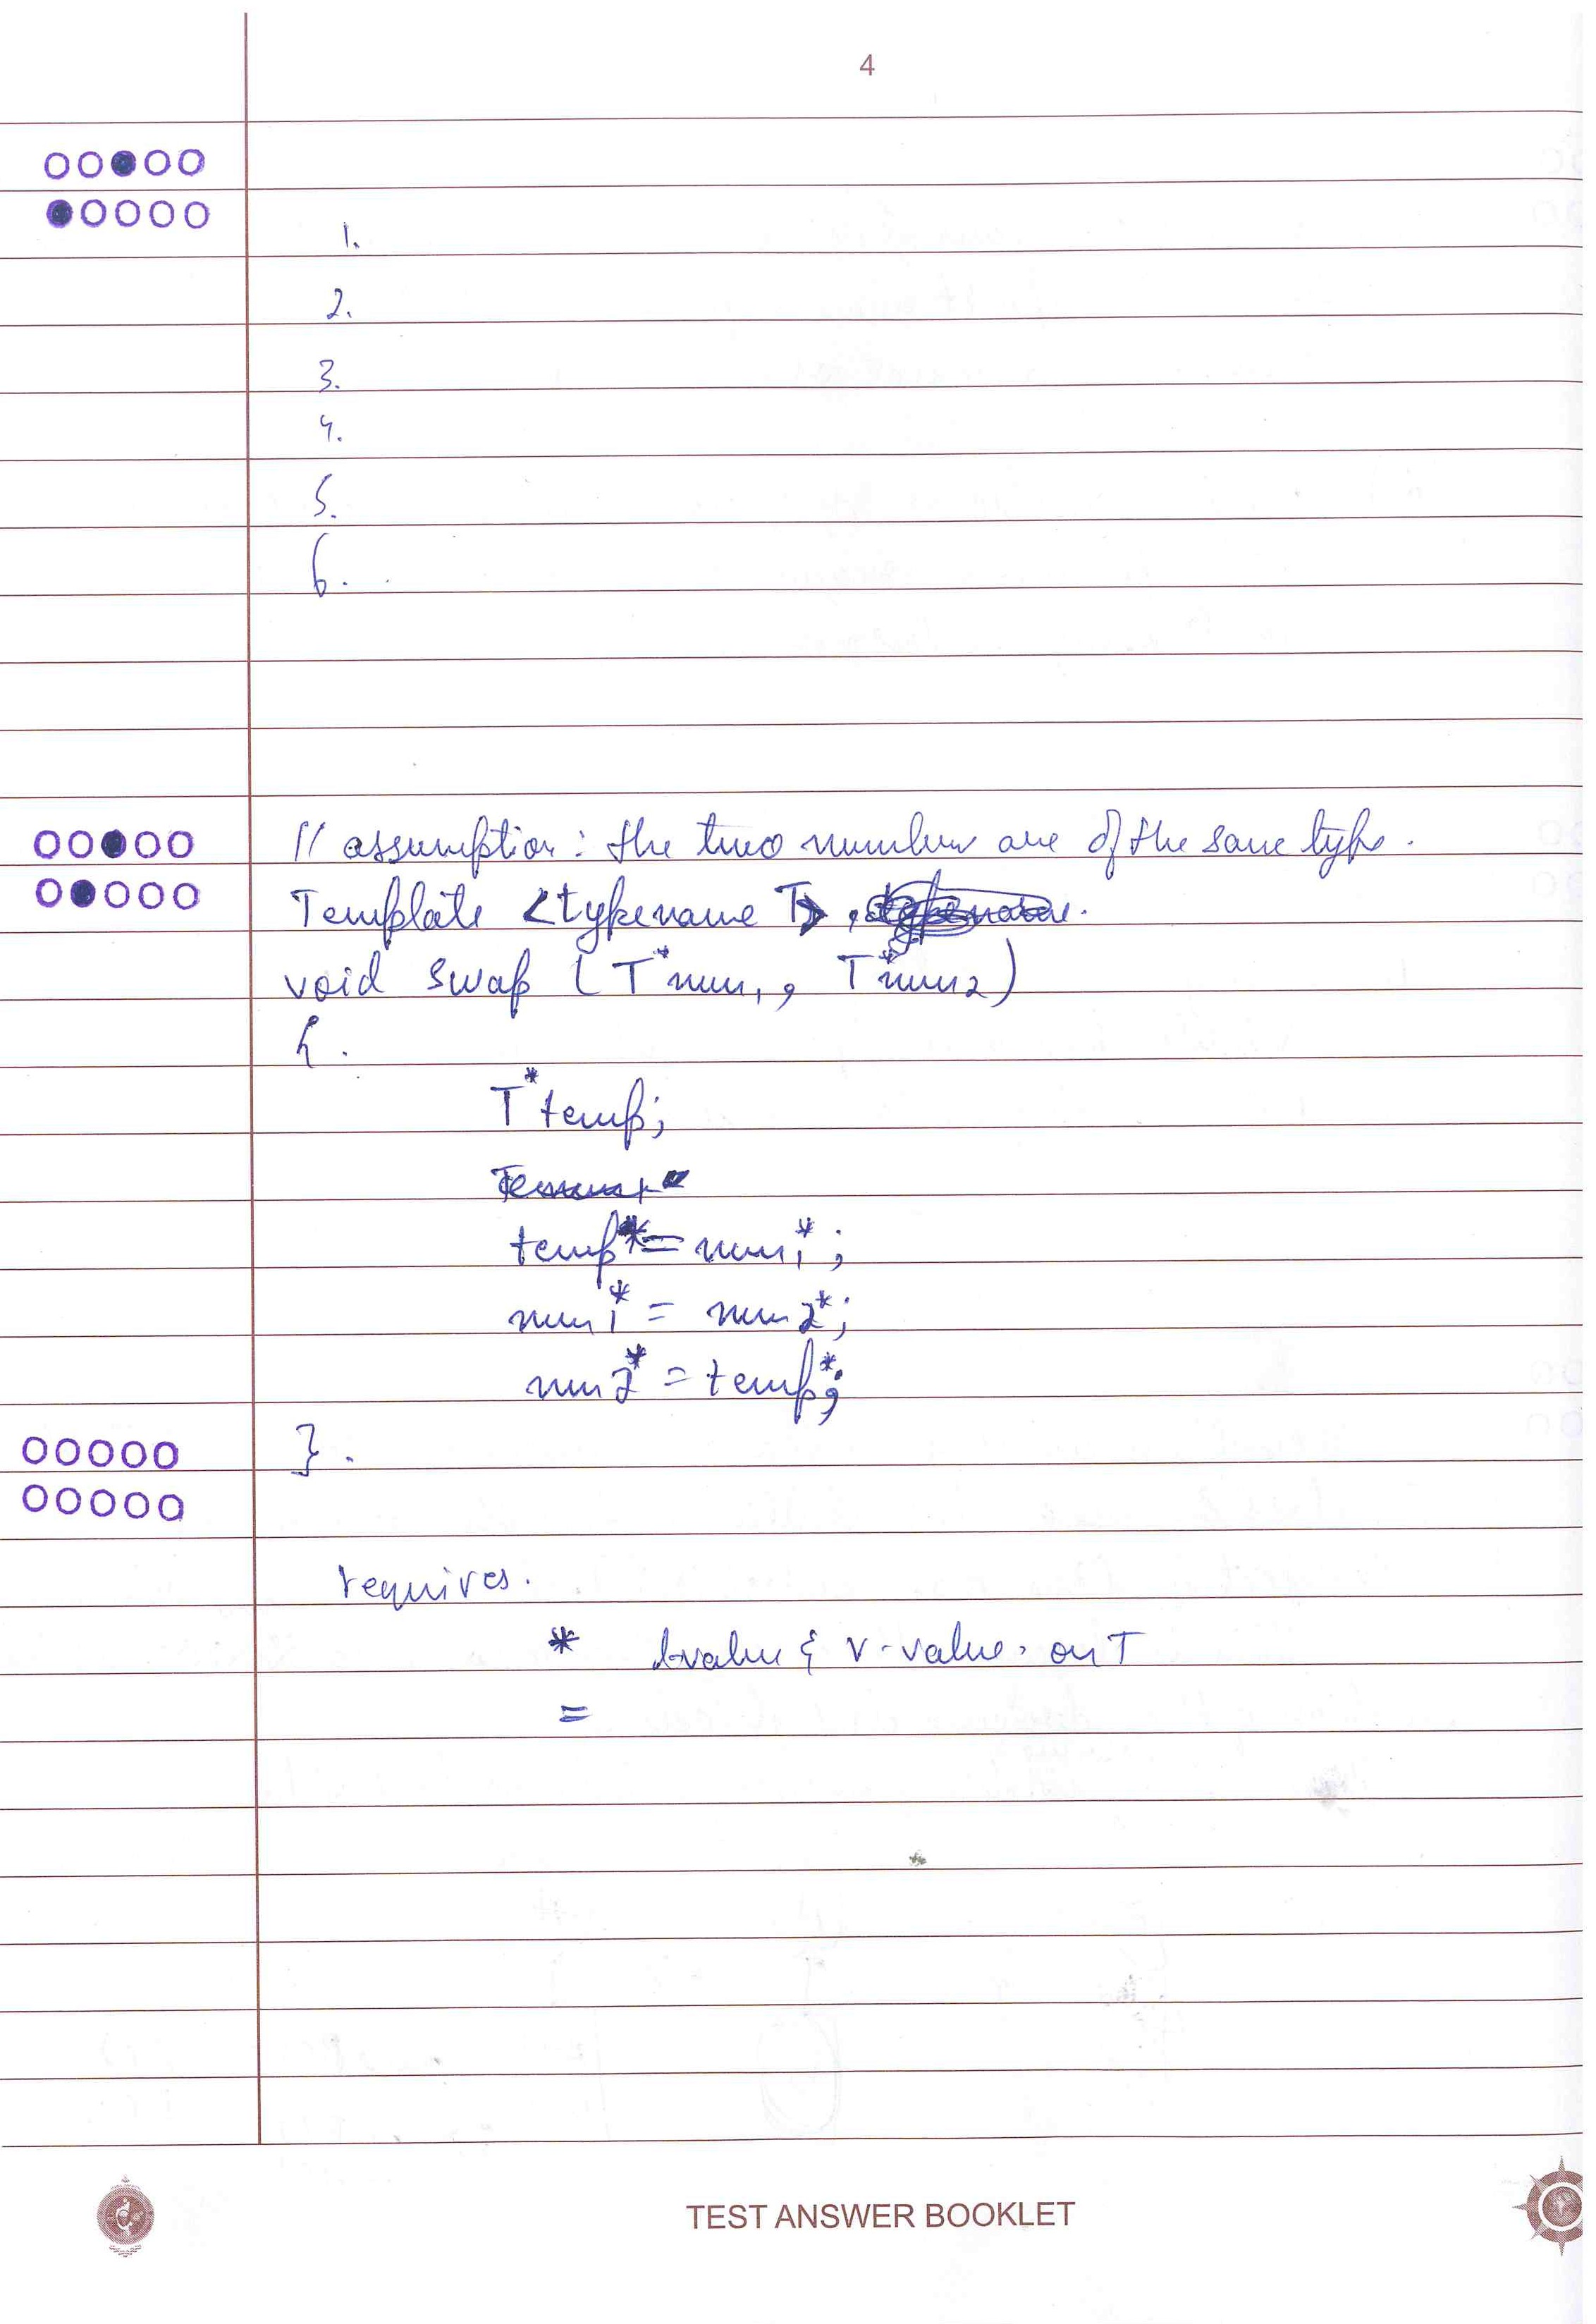 4
1.
2.
3.
4.
5.
6.
// assumption: the two numbers are of the same type.
Template <typename T>
void swap (T*num1, T*num2)
{.
T*temp;
temp*= num1*;
num1* = num2*;
num2* = temp*;
}.
requires.
* l-value & r-value. on T
=
TEST ANSWER BOOKLET